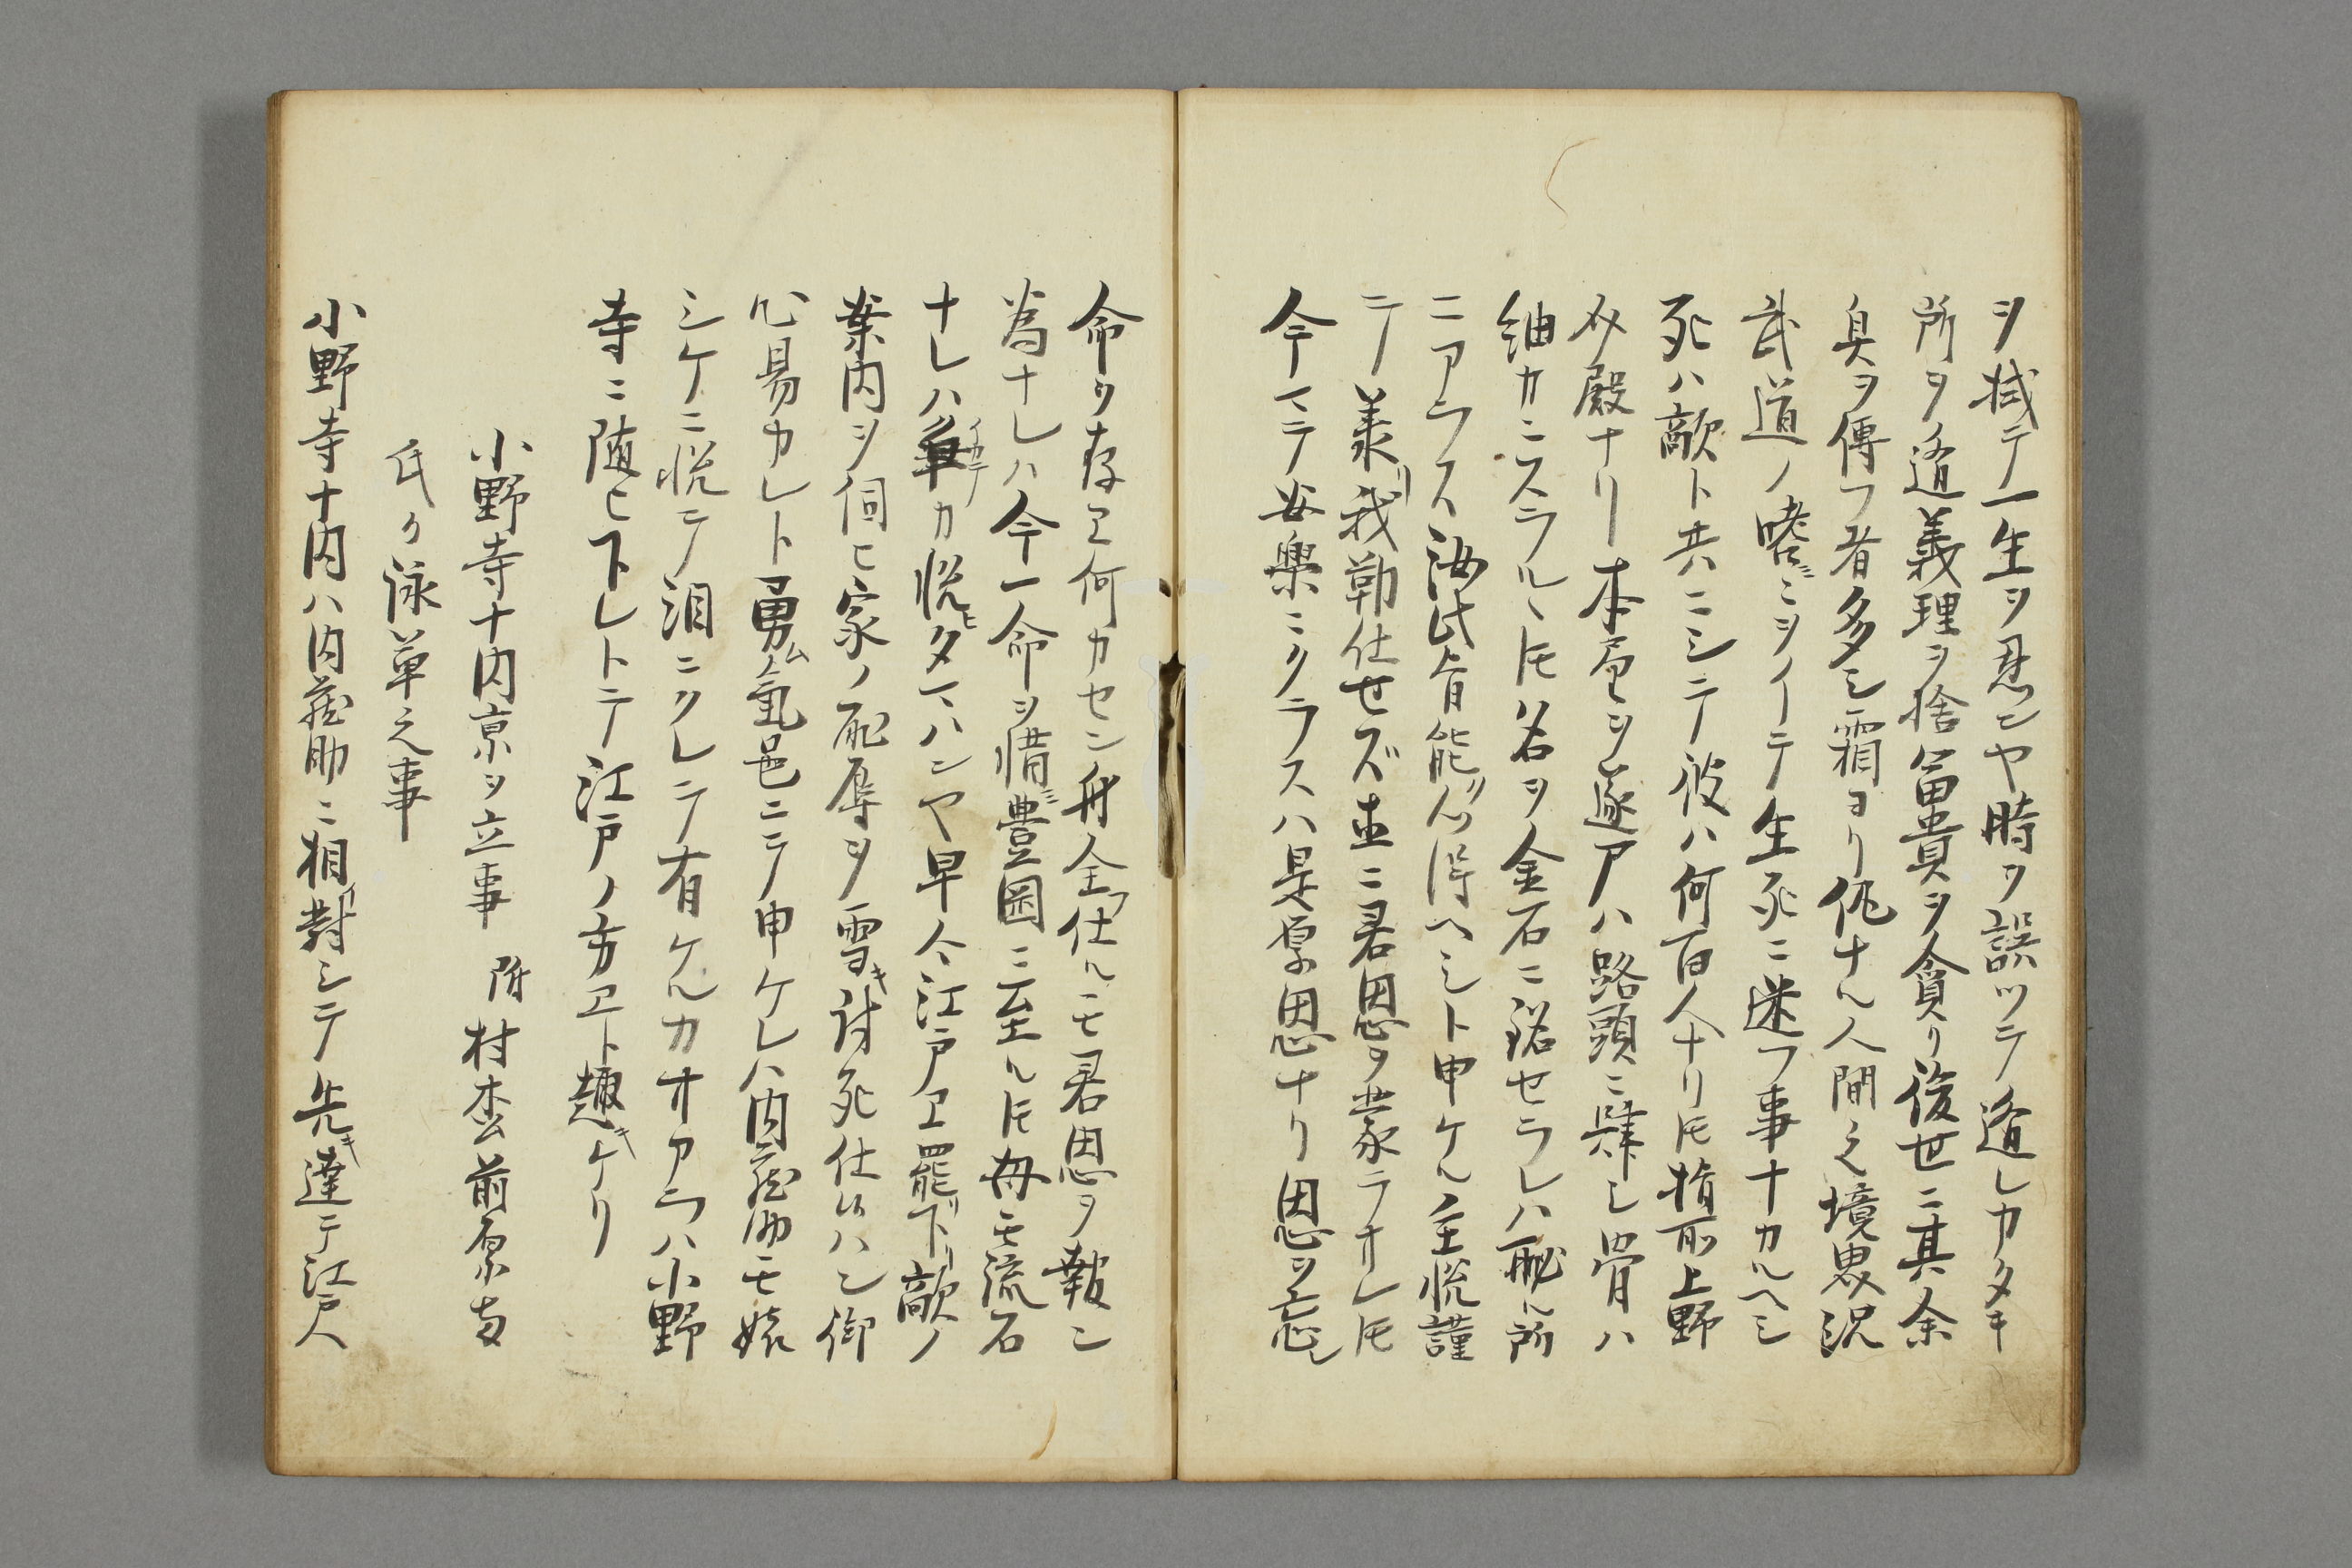 ヲ拭テ一生ヲ忍ンヤ時ヲ誤ツテ逢レカタキ
所ヲ逢義理ヲ捨冨貴ヲ貪リ後世ニ其余
臭ヲ傳フ者多シ霜ヨリ化ナル人間之境界況
武道ノ嗜ミヲイテ生死ニ迷フ事ナカルヘシ
死ハ敵ト共ニシテ彼ハ何百人ナリ𪜈指所上野
介殿ナリ本屋ヲ遂アハ路頭ニ肆シ骨ハ
紬カニスラルヽ𪜈名ヲ金石ニ銘セラレハ耻ル所
ニアラス汝此旨能々得ヘシト申ケル主悦謹
テ義我勤仕セズ並ニ君恩ヲ蒙ラネ𪜈
今マテ安樂ニクラスハ是厚恩ナリ恩ヲ忘レ
命ヲ存ヱ何カセン舟全フ仕ルモ君恩ヲ報ン
為ナレハ今一命ヲ惜ミ豊岡ニ至ル𪜈母モ流石
ナレハ争カ悦ヒタマハンヤ早々江戸ヱ罷下リ敵ノ
案内ヲ伺ヒ家ノ耻辱ヲ雪キ討死仕候ハン御
心易カレト勇ム氣色ニテ申ケレハ内蔵助モ嬉
シケニ悦テ泪ニクレテ有ケルカオアラハ小野
寺ニ随ヒ下レトテ江戸ノ方ヱト趣キケリ
小野寺十内京ヲ立事 附 村松前原両
氏ク詠草之事
小野寺十内ハ内蔵助ニ相對シテ先キ達テ江戸ヘ